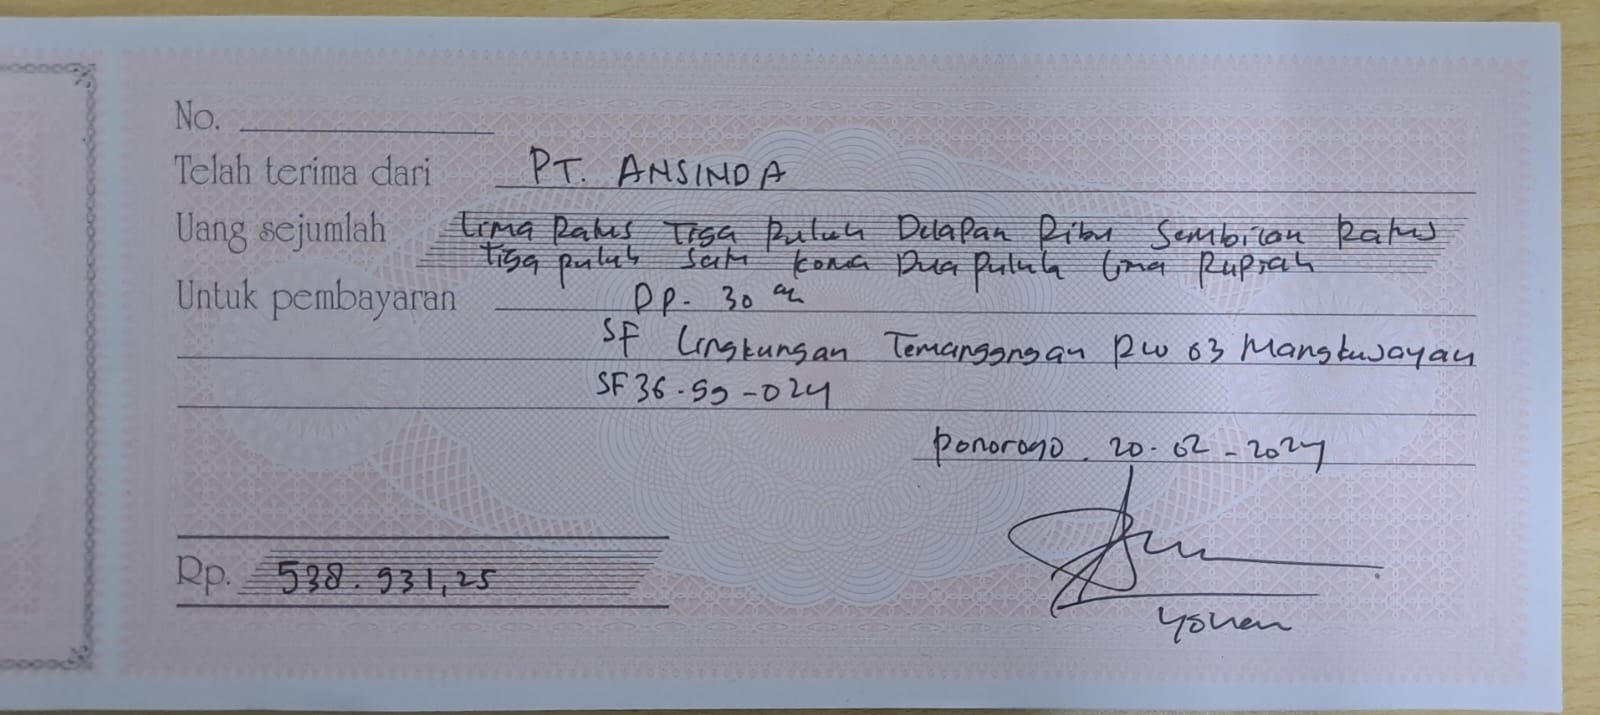 No.
Telah terima dari PT. ANSINDA
Uang sejumlah Lima Ratus Tiga Puluh Delapan Ribu Sembilan Ratus
Tiga puluh Satu koma Dua Puluh Lima Rupiah
Untuk pembayaran DP. 30
SF Lingkungan Temanggongan RW 03 Mangkujayan
SF36-99-024
Ponorogo. 20-02-2024
Rp. 538.931,25